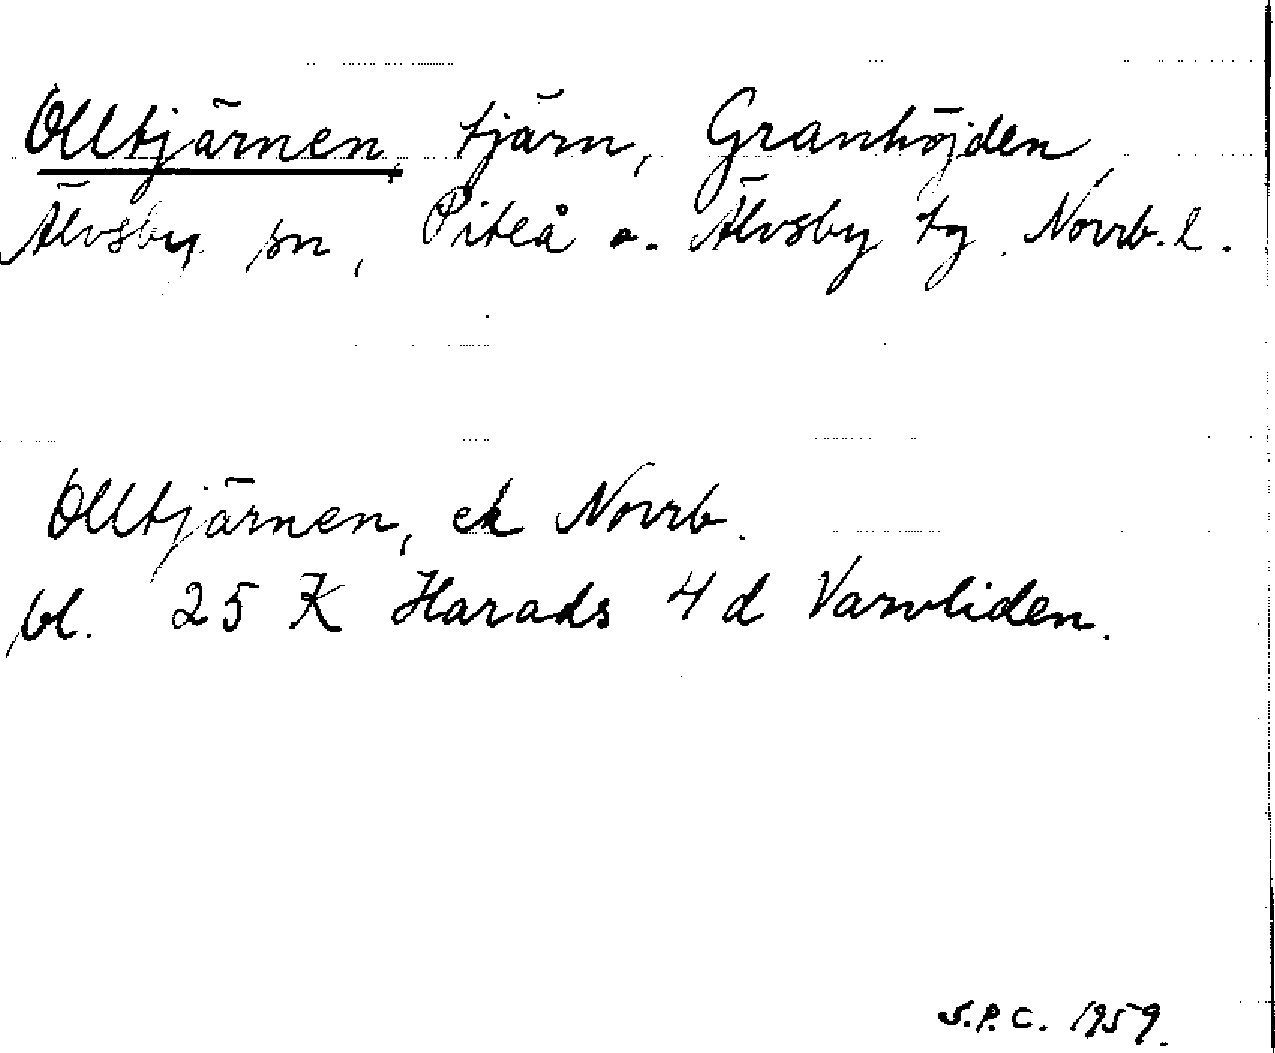 Olltjärnen, tjärn, Granhöjden
Älvsby sn, Piteå o. Älvsby tg. Norrb. l.
Olltjärnen, ek Norrb.
bl. 25 K Harads 4 d Varvliden.
S.P.C. 1959.